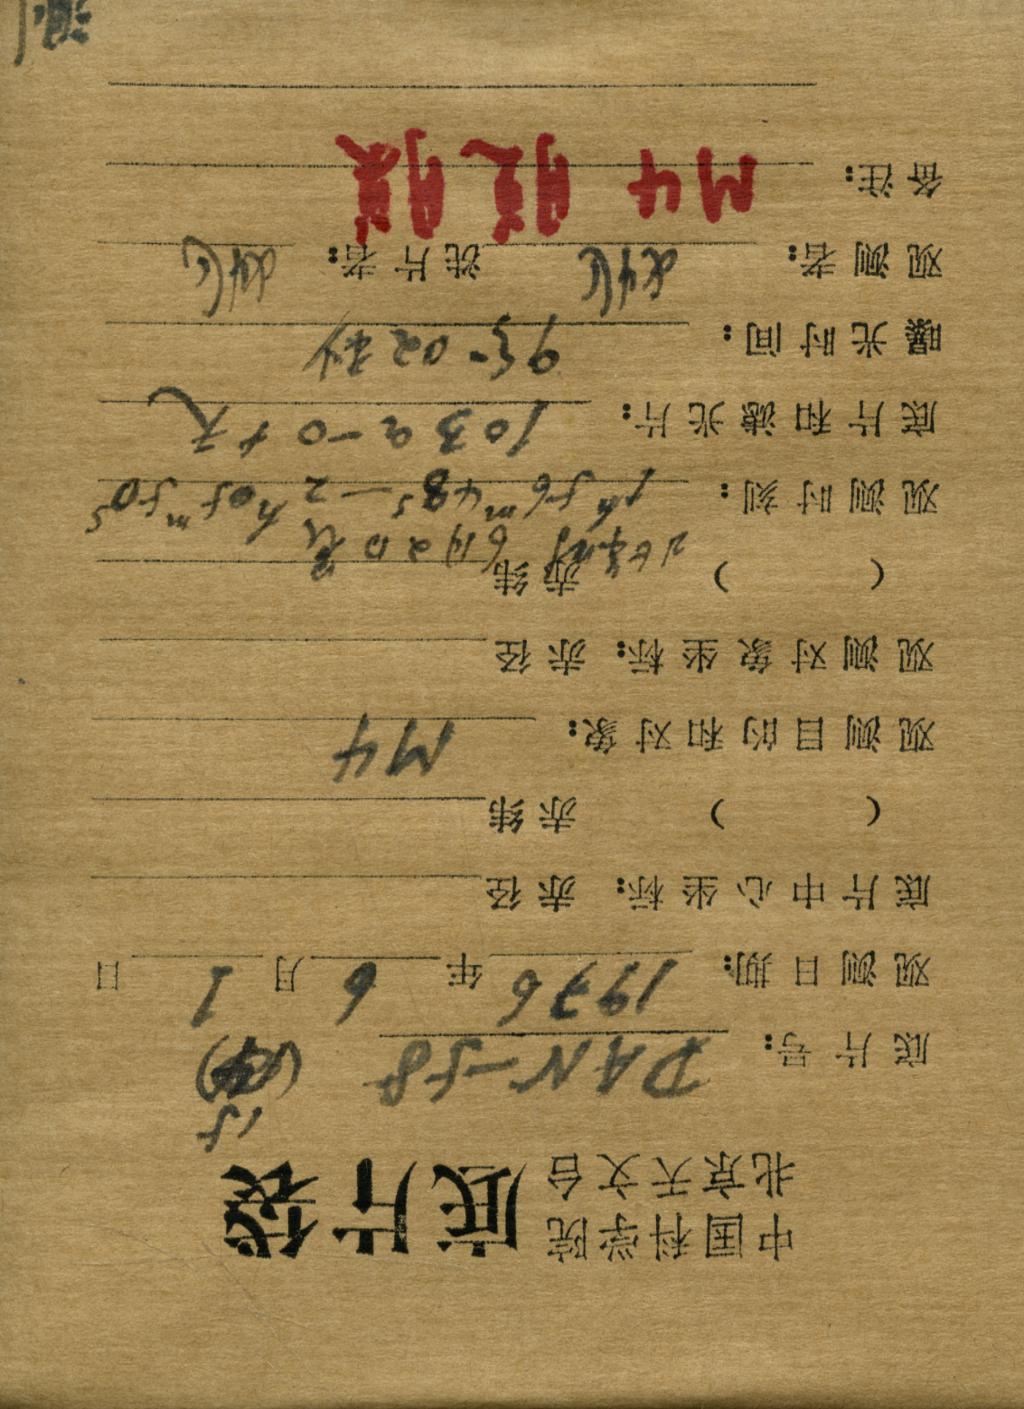 中国科学院
北京天文台
底片袋
15
底片号: DAN-58
观测日期: 1976年6月1日
底片中心坐标: 赤径
( ) 赤纬
观测目的和对象: M4
观测对象坐标: 赤径
( ) 赤纬
北京时 6月2日晨
观测时刻: 1h56m48s—2h05m50s
底片和滤光片: 103a-O+无
曝光时间: 9分02秒
观测者: 洗片者:
备注: M4